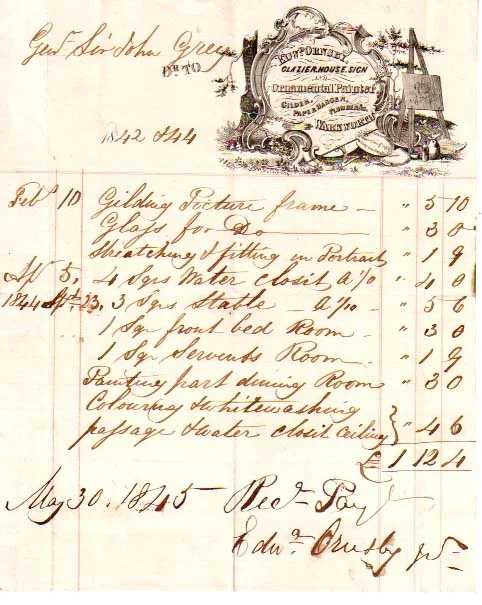 Genl. Sir John Grey
Dr. TO
EDWD. ORNSBY,
GLAZIER, HOUSE, SIGN
AND
Ornamental Painter,
GILDER,
PAPER HANGER,
PLUMBER &c.
WARKWORTH
1842 & 44
Feby 10 Gilding Picture frame — " 5 10
Glass for Do — " 3 0
Streatching & fitting in Portrait " 1 9
Apl 5. 4 Sqrs Water closit " 4 0
1844 Spt 23. 3 Sqrs Stable — " 5 6
1 Sqr front bed Room — " 3 0
1 Sqr Servents Room — " 1 9
Painting part dining Room " 3 0
Colouring & whitewashing
passage & water closit Ceiling } " 4 6
£ 1 12 4
May 30. 1845 Recd. Payt
Edwd. Ornsby Jr